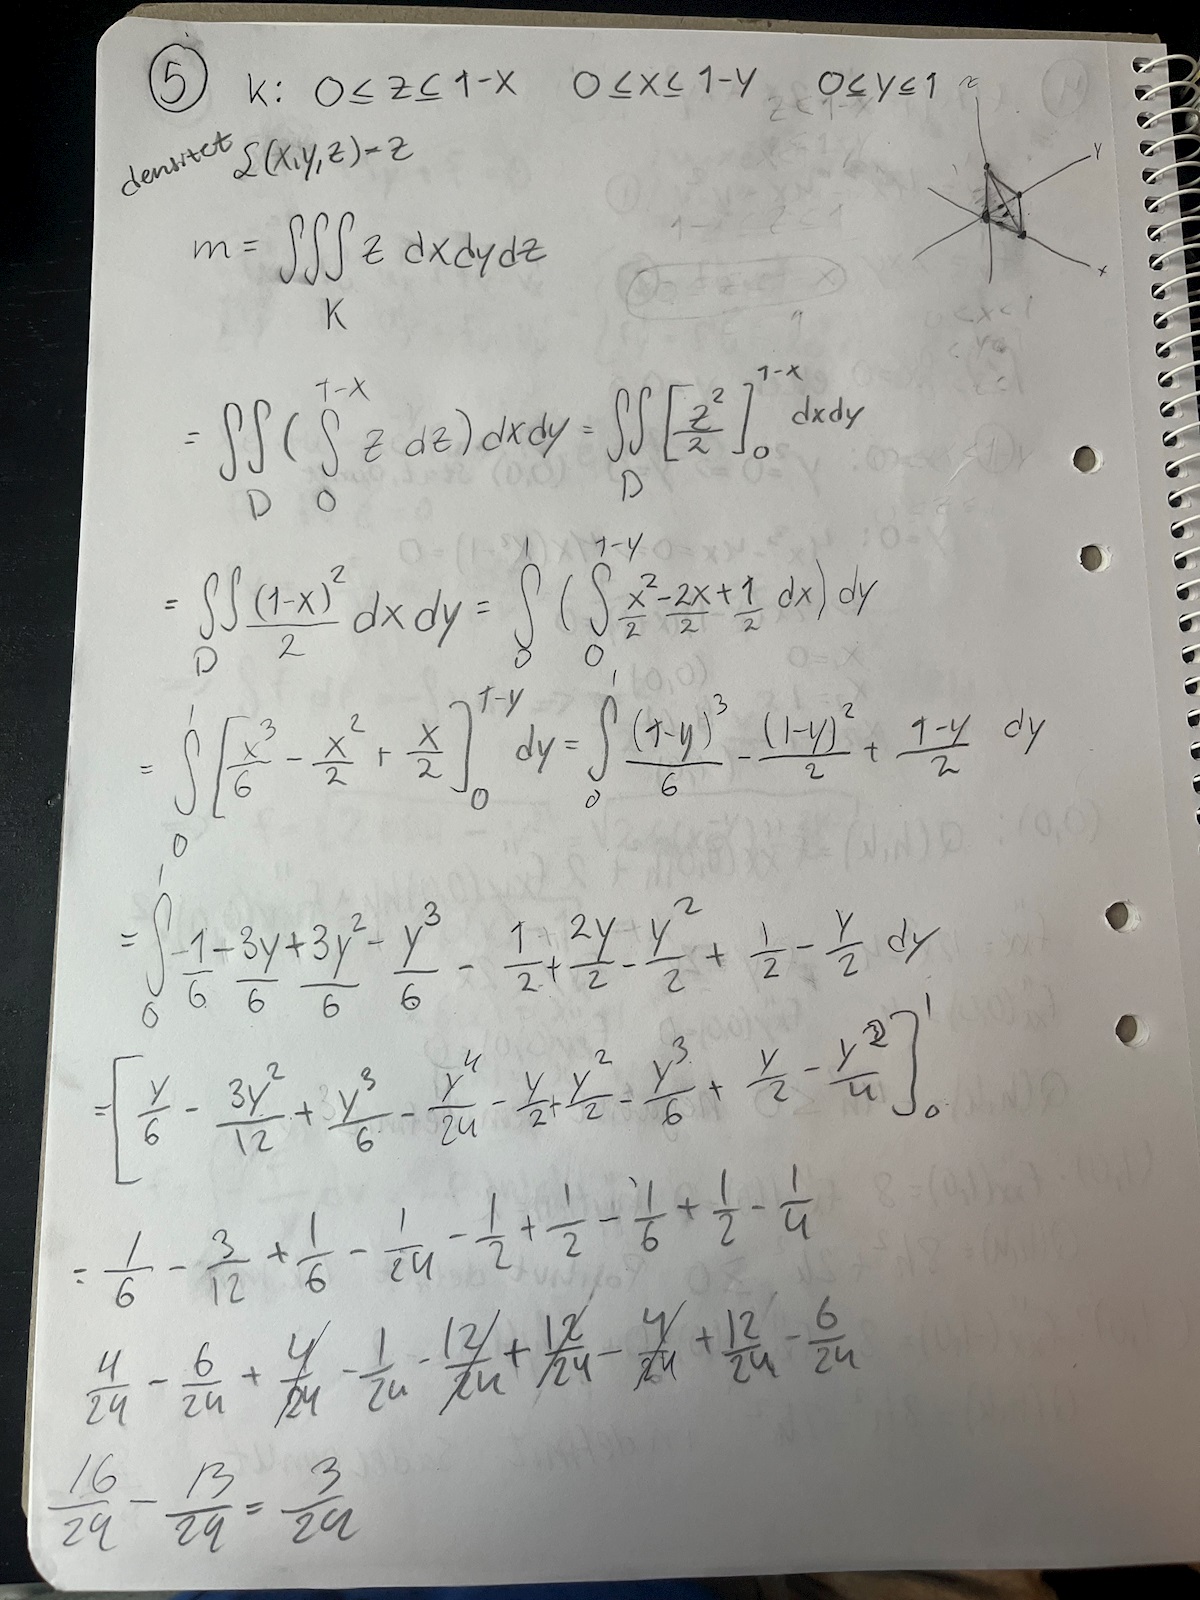 ⑤ K: 0≤z≤1-x 0≤x≤1-y 0≤y≤1 z
y
x
densitet f(x,y,z)=z
m = ∭_K z dxdydz
= ∬_D (∫_0^{1-x} z dz) dxdy = ∬_D [z²/2]_0^{1-x} dxdy
= ∬_D (1-x)²/2 dxdy = ∫_0^1 (∫_0^{1-y} x²/2 - 2x/2 + 1/2 dx) dy
= ∫_0^1 [x³/6 - x²/2 + x/2]_0^{1-y} dy = ∫_0^1 (1-y)³/6 - (1-y)²/2 + 1-y/2 dy
= ∫_0^1 -1/6 - 3y/6 + 3y²/6 - y³/6 - 1/2 + 2y/2 - y²/2 + 1/2 - y/2 dy
= [y/6 - 3y²/12 + y³/6 - y⁴/24 - y/2 + y²/2 - y³/6 + y/2 - y²/4]_0^1
= 1/6 - 3/12 + 1/6 - 1/24 - 1/2 + 1/2 - 1/6 + 1/2 - 1/4
4/24 - 6/24 + 4/24 - 1/24 - 12/24 + 12/24 - 4/24 + 12/24 - 6/24
16/24 - 13/24 = 3/24